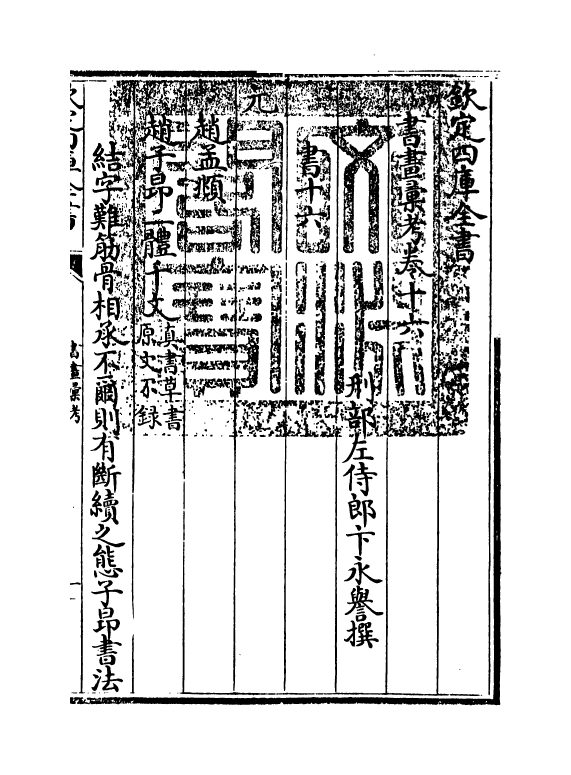 欽定四庫全書
書畫彙考卷十六
刑部左侍郎卞永譽撰
書十六
元
趙孟頫
趙子昂二體千文真書草書原文不錄
結字難筋骨相承不爾則有斷續之態子昂書法
書畫彙考